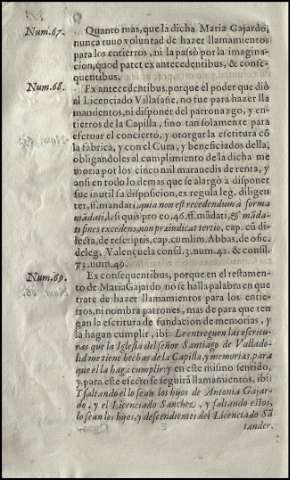 Num. 67. Quanto mas, que la dicha Maria Gajardo,
nunca tuuo voluntad de hazer llamamientos
para los entierros, ni la passò por la imagina-
cion, quod patet ex antecedentibus, & conse-
quentibus.
Num. 68. Ex antecedentibus, porque el poder que diò
al Licenciado Villafañe, no fue para hazer lla
mamientos, ni disponer del patronazgo, y en-
tierros de la Capilla, sino tan solamente para
efectuar el concierto, y otorgar la escritura cõ
la fabrica, y con el Cura, y beneficiados della,
obligandoles al cumplimiento de la dicha me
moria por los cinco mil marauedis de renta, y
ansi en todo lo demas que se alargò a disponer
fue inutil su disposicion, ex regula leg. diligen
ter, ff. mandati, quia non est recedendum à forma
mãdati, l. si quis pro eo, 46. ff. mãdati, & mãda-
ti fines excedens, non præiudicat tertio, cap. cũ di-
lecta, de rescriptis, cap. cum lim. Abbas, de ofic.
deleg. Valençuela consil. 3. num. 42. & consil.
73. num. 49.
Num. 69. Ex consequentibus, porque en el testamen-
to de Maria Gajardo no se halla palabra en que
trate de hazer llamamientos para los entie-
rros, ni nombra patrones, mas de para que ten
gan la escritura de fundacion de memorias, y
la hagan cumplir, ibi: Le entreguen las escritu-
ras que la Iglesia del señor Santiago de Vallado-
lid me tiene hechas de la Capilla, y memorias, para
que el la haga cumplir; y en este mismo sentido,
y para este efecto se seguirà llamamientos, ibi:
Y faltando el lo sean los hijos de Antonia Gajar-
do, y el Licenciado Sanchez, y faltando estos,
lo sean los hijos, y descendientes del Licenciado Sã
tander.